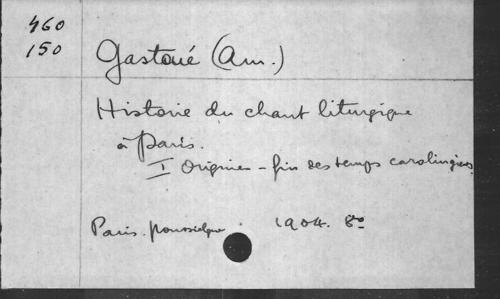 460
150
Gastoué (Am.)
Histoire du chant liturgique
à Paris.
I Origines - fin des temps carolingiens
Paris. Poussielgue. 1904. 8º